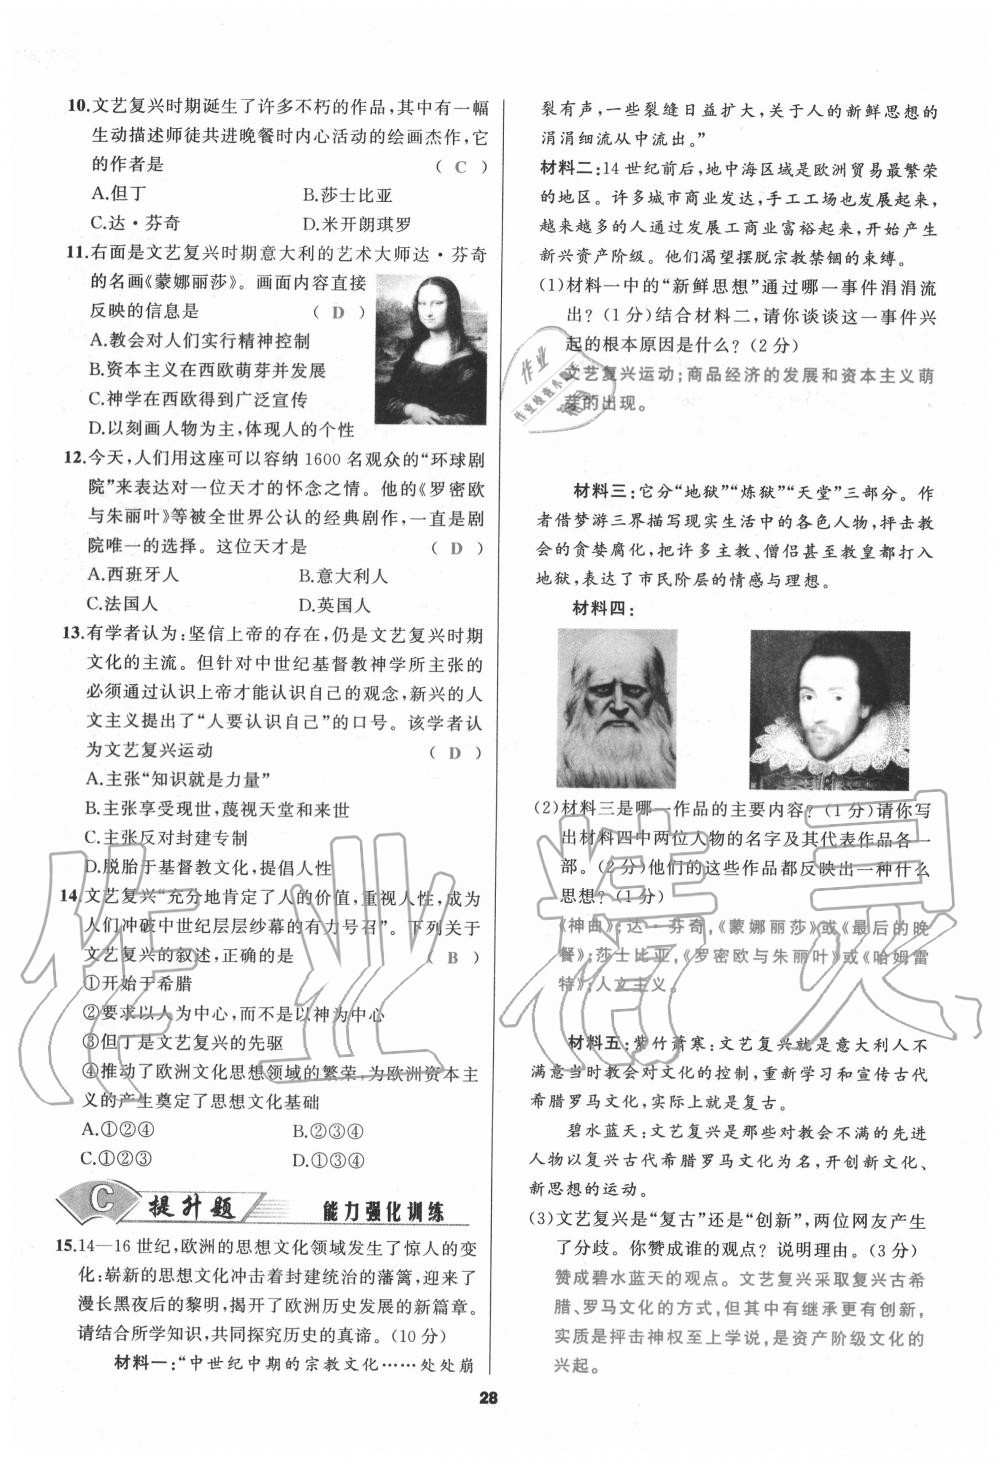 10.文艺复兴时期诞生了许多不朽的作品,其中有一幅
生动描述师徒共进晚餐时内心活动的绘画杰作,它
的作者是 ( C )
A.但丁 B.莎士比亚
C.达·芬奇 D.米开朗琪罗
11.右面是文艺复兴时期意大利的艺术大师达·芬奇
的名画《蒙娜丽莎》。画面内容直接
反映的信息是 ( D )
A.教会对人们实行精神控制
B.资本主义在西欧萌芽并发展
C.神学在西欧得到广泛宣传
D.以刻画人物为主,体现人的个性
12.今天,人们用这座可以容纳1600名观众的“环球剧
院”来表达对一位天才的怀念之情。他的《罗密欧
与朱丽叶》等被全世界公认的经典剧作,一直是剧
院唯一的选择。这位天才是 ( D )
A.西班牙人 B.意大利人
C.法国人 D.英国人
13.有学者认为:坚信上帝的存在,仍是文艺复兴时期
文化的主流。但针对中世纪基督教神学所主张的
必须通过认识上帝才能认识自己的观念,新兴的人
文主义提出了“人要认识自己”的口号。该学者认
为文艺复兴运动 ( D )
A.主张“知识就是力量”
B.主张享受现世,蔑视天堂和来世
C.主张反对封建专制
D.脱胎于基督教文化,提倡人性
14.文艺复兴“充分地肯定了人的价值,重视人性,成为
人们冲破中世纪层层纱幕的有力号召”。下列关于
文艺复兴的叙述,正确的是 ( B )
①开始于希腊
②要求以人为中心,而不是以神为中心
③但丁是文艺复兴的先驱
④推动了欧洲文化思想领域的繁荣,为欧洲资本主
义的产生奠定了思想文化基础
A.①②④ B.②③④
C.①②③ D.①③④
C 提升题 能力强化训练
15.14—16世纪,欧洲的思想文化领域发生了惊人的变
化:崭新的思想文化冲击着封建统治的藩篱,迎来了
漫长黑夜后的黎明,揭开了欧洲历史发展的新篇章。
请结合所学知识,共同探究历史的真谛。(10分)
材料一:“中世纪中期的宗教文化……处处崩
裂有声,一些裂缝日益扩大,关于人的新鲜思想的
涓涓细流从中流出。”
材料二:14世纪前后,地中海区域是欧洲贸易最繁荣
的地区。许多城市商业发达,手工工场也发展起来,
越来越多的人通过发展工商业富裕起来,开始产生
新兴资产阶级。他们渴望摆脱宗教禁锢的束缚。
(1)材料一中的“新鲜思想”通过哪一事件涓涓流
出?(1分)结合材料二,请你谈谈这一事件兴
起的根本原因是什么?(2分)
文艺复兴运动;商品经济的发展和资本主义萌
芽的出现。
材料三:它分“地狱”“炼狱”“天堂”三部分。作
者借梦游三界描写现实生活中的各色人物,抨击教
会的贪婪腐化,把许多主教、僧侣甚至教皇都打入
地狱,表达了市民阶层的情感与理想。
材料四:
(2)材料三是哪一作品的主要内容?(1分)请你写
出材料四中两位人物的名字及其代表作品各一
部。(2分)他们的这些作品都反映出一种什么
思想?(1分)
《神曲》;达·芬奇,《蒙娜丽莎》或《最后的晚
餐》;莎士比亚,《罗密欧与朱丽叶》或《哈姆雷
特》;人文主义。
材料五:紫竹萧寒:文艺复兴就是意大利人不
满意当时教会对文化的控制,重新学习和宣传古代
希腊罗马文化,实际上就是复古。
碧水蓝天:文艺复兴是那些对教会不满的先进
人物以复兴古代希腊罗马文化为名,开创新文化、
新思想的运动。
(3)文艺复兴是“复古”还是“创新”,两位网友产生
了分歧。你赞成谁的观点?说明理由。(3分)
赞成碧水蓝天的观点。文艺复兴采取复兴古希
腊、罗马文化的方式,但其中有继承更有创新,
实质是抨击神权至上学说,是资产阶级文化的
兴起。
28
作业精灵